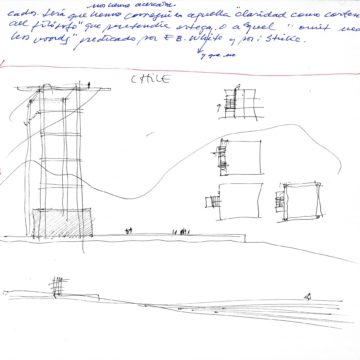 nos hemos acercado
cados. Será que hemos conseguido aquella "claridad como cortesía
del filósofo" que pretendía ortega, o aquel "omit needless
words" predicado por E B. White y por: Strike.
y que no
CHILE